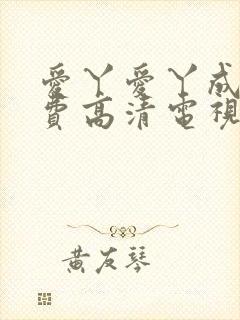 愛丫愛丫成
費高清電視
黃友琴